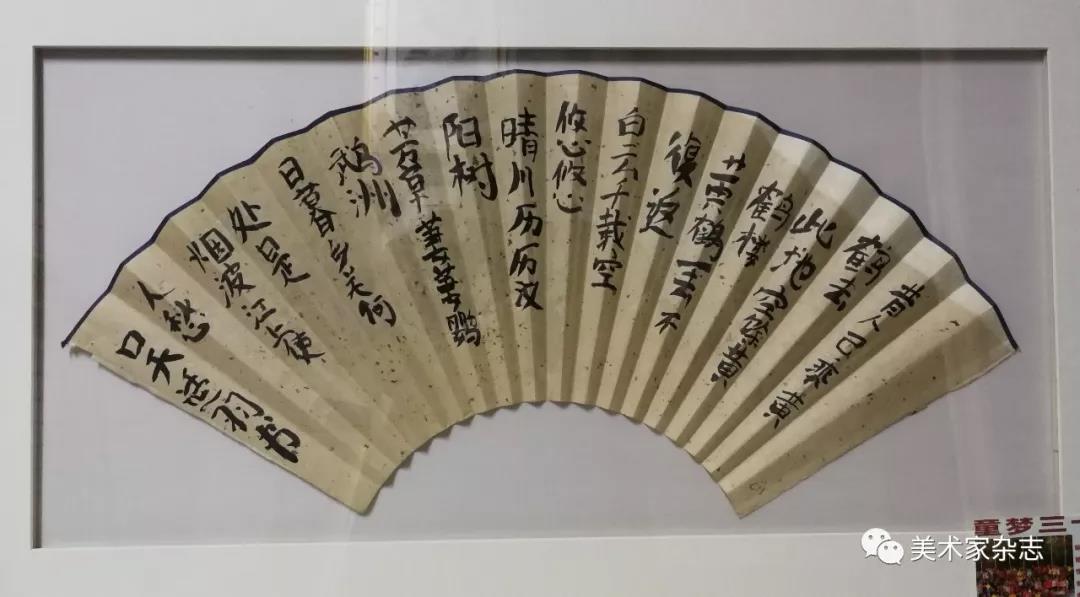 昔人已乘黄
鹤去
此地空馀黄
鹤楼
黄鹤一去不
復返
白云千载空
悠悠
晴川历历汉
阳树
芳草萋萋鹦
鹉洲
日暮乡关何
处是
烟波江上使
人愁
书
童梦三
美术家杂志